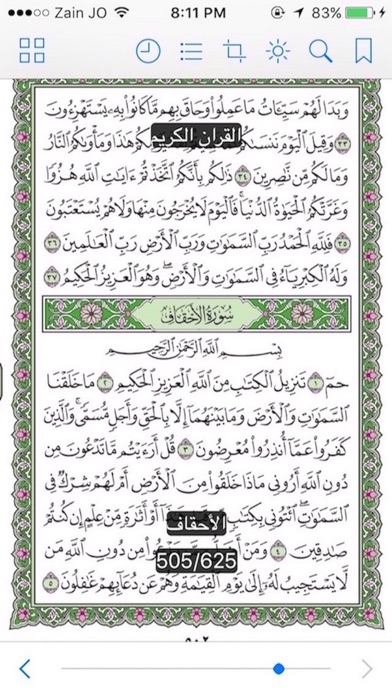 Zain JO 8:11 PM 83%
وَبَدَا لَهُمْ سَيِّـَٔاتُ مَا عَمِلُوا۟ وَحَاقَ بِهِم مَّا كَانُوا۟ بِهِۦ يَسْتَهْزِءُونَ
٣٣ وَقِيلَ ٱلْيَوْمَ نَنسَىٰكُمْ هَٰذَا وَمَأْوَىٰكُمُ ٱلنَّارُ
القران الكريم
وَمَا لَكُم مِّن نَّـٰصِرِينَ ٣٤ ذَٰلِكُم بِأَنَّكُمُ ٱتَّخَذْتُمْ ءَايَـٰتِ ٱللَّهِ هُزُوًا
وَغَرَّتْكُمُ ٱلْحَيَوٰةُ ٱلدُّنْيَا فَٱلْيَوْمَ لَا يُخْرَجُونَ مِنْهَا وَلَا هُمْ يُسْتَعْتَبُونَ
٣٥ فَلِلَّهِ ٱلْحَمْدُ رَبِّ ٱلسَّمَـٰوَٰتِ وَرَبِّ ٱلْأَرْضِ رَبِّ ٱلْعَـٰلَمِينَ ٣٦
وَلَهُ ٱلْكِبْرِيَآءُ فِى ٱلسَّمَـٰوَٰتِ وَٱلْأَرْضِ وَهُوَ ٱلْعَزِيزُ ٱلْحَكِيمُ ٣٧
سُورَةُ الأَحْقَافِ
بِسْمِ ٱللَّهِ ٱلرَّحْمَـٰنِ ٱلرَّحِيمِ
حمٓ ١ تَنزِيلُ ٱلْكِتَـٰبِ مِنَ ٱللَّهِ ٱلْعَزِيزِ ٱلْحَكِيمِ ٢ مَا خَلَقْنَا
ٱلسَّمَـٰوَٰتِ وَٱلْأَرْضَ وَمَا بَيْنَهُمَآ إِلَّا بِٱلْحَقِّ وَأَجَلٍ مُّسَمًّى وَٱلَّذِينَ
كَفَرُوا۟ عَمَّآ أُنذِرُوا۟ مُعْرِضُونَ ٣ قُلْ أَرَءَيْتُم مَّا تَدْعُونَ مِن
دُونِ ٱللَّهِ أَرُونِى مَاذَا خَلَقُوا۟ مِنَ ٱلْأَرْضِ أَمْ لَهُمْ شِرْكٌ فِى
ٱلسَّمَـٰوَٰتِ ٱئْتُونِى بِكِتَـٰبٍ أَوْ أَثَـٰرَةٍ مِّنْ عِلْمٍ إِن كُنتُمْ
الأحقاف
صَـٰدِقِينَ ٤ وَمَنْ مِن دُونِ ٱللَّهِ مَن
505/625
لَّا يَسْتَجِيبُ لَهُۥٓ إِلَىٰ يَوْمِ ٱلْقِيَـٰمَةِ وَهُمْ عَن دُعَآئِهِمْ غَـٰفِلُونَ ٥
٥٠٢